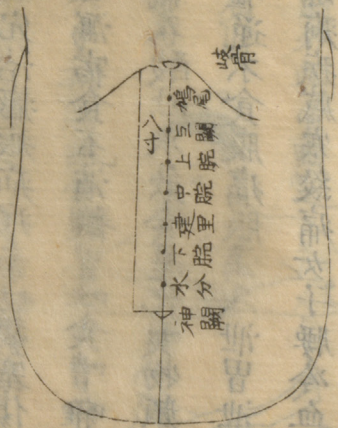 岐骨
鳩尾
巨闕
上脘
中脘
建里
下脘
水分
神闕
八寸